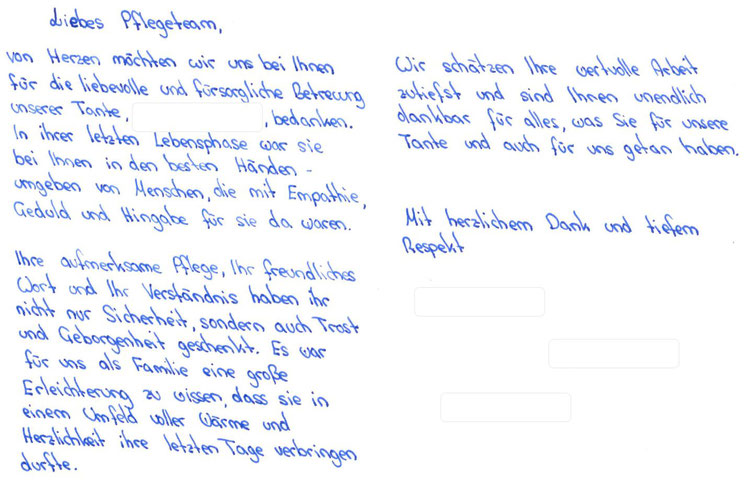 Liebes Pflegeteam,
von Herzen möchten wir uns bei Ihnen
für die liebevolle und fürsorgliche Betreuung
unserer Tante, , bedanken.
In ihrer letzten Lebensphase war sie
bei Ihnen in den besten Händen –
umgeben von Menschen, die mit Empathie,
Geduld und Hingabe für sie da waren.
Ihre aufmerksame Pflege, Ihr freundliches
Wort und Ihr Verständnis haben ihr
nicht nur Sicherheit, sondern auch Trost
und Geborgenheit geschenkt. Es war
für uns als Familie eine große
Erleichterung zu wissen, dass sie in
einem Umfeld voller Wärme und
Herzlichkeit ihre letzten Tage verbringen
durfte.
Wir schätzen Ihre wertvolle Arbeit
zutiefst und sind Ihnen unendlich
dankbar für alles, was Sie für unsere
Tante und auch für uns getan haben.
Mit herzlichem Dank und tiefem
Respekt